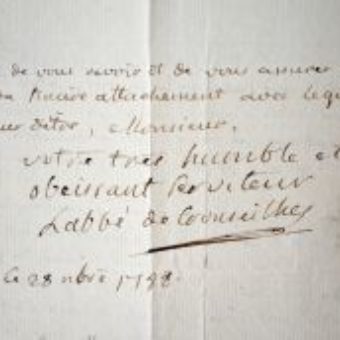 de vous revoir et de vous assurer
sincère attachement avec leq
d'être, Monsieur,
votre tres humble et
obeissant serviteur
L'abbé de
ce 28 nbre 1788.